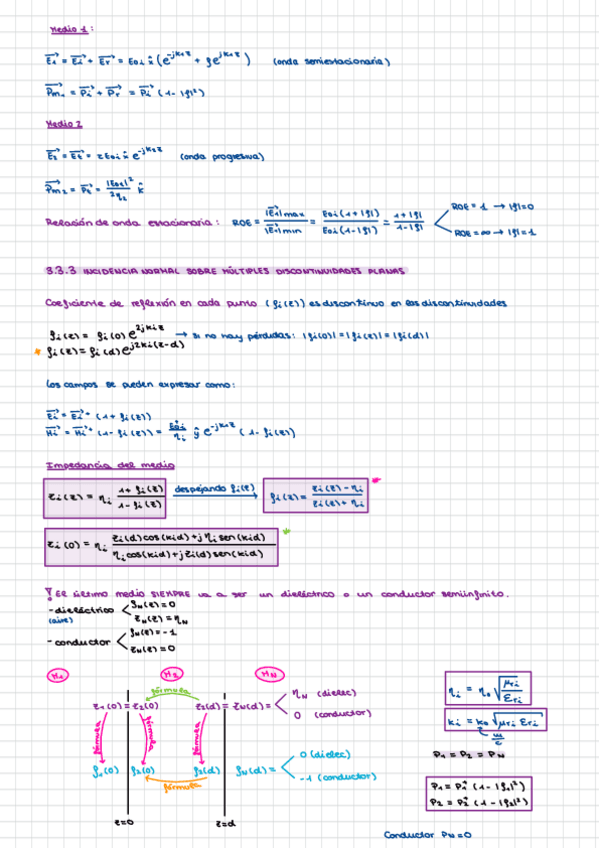 Medio 1:
E₁ = Eᵢ + Eᵣ = E₀ᵢ x̂ (e^-jk₁z + ρe^jk₁z) (onda semiestacionaria)
Pm₁ = Pᵢ + Pᵣ = Pᵢ (1-|ρ|²)
Medio 2
E₂ = Eₜ = τE₀ᵢ x̂ e^-jk₂z (onda progresiva)
Pm₂ = Pₜ = |E₀ₜ|²/2η₂ k̂
Relación de onda estacionaria: ROE = |E₁|max/|E₁|min = E₀ᵢ(1+|ρ|)/E₀ᵢ(1-|ρ|) = 1+|ρ|/1-|ρ|
ROE = 1 → |ρ|=0
ROE = ∞ → |ρ|=1
3.3.3 INCIDENCIA NORMAL SOBRE MÚLTIPLES DISCONTINUIDADES PLANAS
Coeficiente de reflexión en cada punto (ρᵢ(z)) es discontinuo en las discontinuidades
ρᵢ(z) = ρᵢ(0) e^2jkᵢz → si no hay pérdidas: |ρᵢ(0)| = |ρᵢ(z)| = |ρᵢ(d)|
* ρᵢ(z) = ρᵢ(d) e^j2kᵢ(z-d)
Los campos se pueden expresar como:
Eᵢ = Eᵢ⁺ (1+ρᵢ(z))
Hᵢ = Hᵢ⁺ (1-ρᵢ(z)) = E₀ᵢ/ηᵢ ŷ e^-jk₁z (1-ρᵢ(z))
Impedancia del medio
zᵢ(z) = ηᵢ 1+ρᵢ(z)/1-ρᵢ(z) despejando ρᵢ(z) → ρᵢ(z) = zᵢ(z)-ηᵢ/zᵢ(z)+ηᵢ *
zᵢ(0) = ηᵢ zᵢ(d)cos(kᵢd)+jηᵢ sen(kᵢd)/ηᵢ cos(kᵢd)+jzᵢ(d) sen(kᵢd) *
! El último medio SIEMPRE va a ser un dieléctrico o un conductor semiinfinito.
- dieléctrico ρN(z)=0
(aire) zN(z)=ηN
- conductor ρN(z)=-1
zN(z)=0
M1 M2 MN
fórmula
z₁(0) = z₂(0) z₂(d) = zN(d) = ηN (dielec)
0 (conductor)
fórmula fórmula fórmula
ρ₁(0) ρ₂(0) ρ₂(d) ρN(d) = 0 (dielec)
-1 (conductor)
fórmula
z=0 z=d
ηᵢ = η₀ √μrᵢ/εrᵢ
kᵢ = k₀ √μrᵢ εrᵢ
w/c
P₁ = P₂ = PN
P₁ = P₁⁺ (1-|ρ₁|²)
P₂ = P₂⁺ (1-|ρ₂|²)
Conductor PN=0